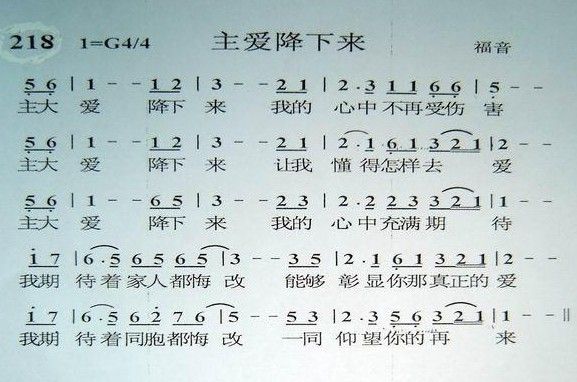 218 1=G4/4 主爱降下来 福音
5 6 | 1 - - 1 2 | 3 - - 2 1 | 2 · 3 1 1 6 6 | 5 - -
主大 爱 降下 来 我的 心中不再受伤 害
5 6 | 1 - - 1 2 | 3 - - 2 1 | 2 · 1 6 1 3 2 1 | 2 - -
主大 爱 降下 来 让我 懂得怎样去 爱
5 6 | 1 - - 6 5 | 3 - - 2 1 | 2 · 2 2 3 3 2 1 | 1 - -
主大 爱 降下 来 我的 心中充满期 待
1 7 | 6 · 5 6 5 6 5 | 3 - - 3 5 | 2 · 1 6 1 3 2 1 | 2 - -
我期 待着家人都悔 改 能够 彰显你那真正的爱
1 7 | 6 · 5 6 2 7 6 | 5 - - 5 3 | 2 · 3 5 6 3 2 1 | 1 - - ||
我期 待着同胞都悔 改 一同 仰望你的再 来